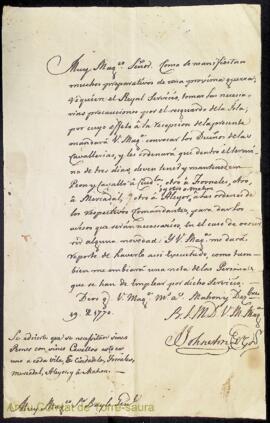 Muy Mag.co Señor. Como se manifiestan
muchos preparativos de una proxima guerra,
requieren el Royal Servicio, tomar las necesa-
rias precauciones por el resguardo de la Isla,
por cuyo efeto â la recepcion de la presente
mandará V. Mag.a convocar los Dueños de la
Cavallerias, y les ordenará que dentro el termi-
no de tres dias deven tener y mantener
Peon y Cavallo â otro â Forneles, otro
â Mercadal, otro â Alayor, a las ordenes de
los respectivos Comandantes, para dar los
avisos que seran necessarios. En el caso de occur-
rir alguna novedad: Y V. Mag.a me dará
reporte de haverlo assi executado, como tam-
bien me embiará una nota de las Persona
que se han de emplear por dicho servicio.
Dios g.e V. Mag.a m.s a.s Mahon y
29. 1770.
B. L. M. D. V. M. Mag.a
Johnston
Se advierte que se necessitan cinco
Peones con cinco Cavallos esto es
uno a cada vila, Ciudadela, Forneles,
Mercadal, Alayor y â Mahon.
Muy Mag.co S.r